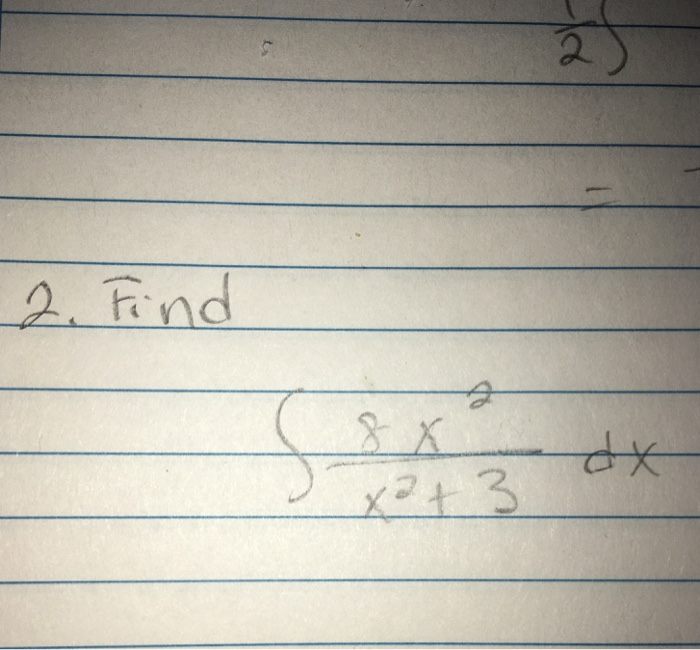 1/2 ∫
=
2. Find
∫ 8x² / x²+3 dx